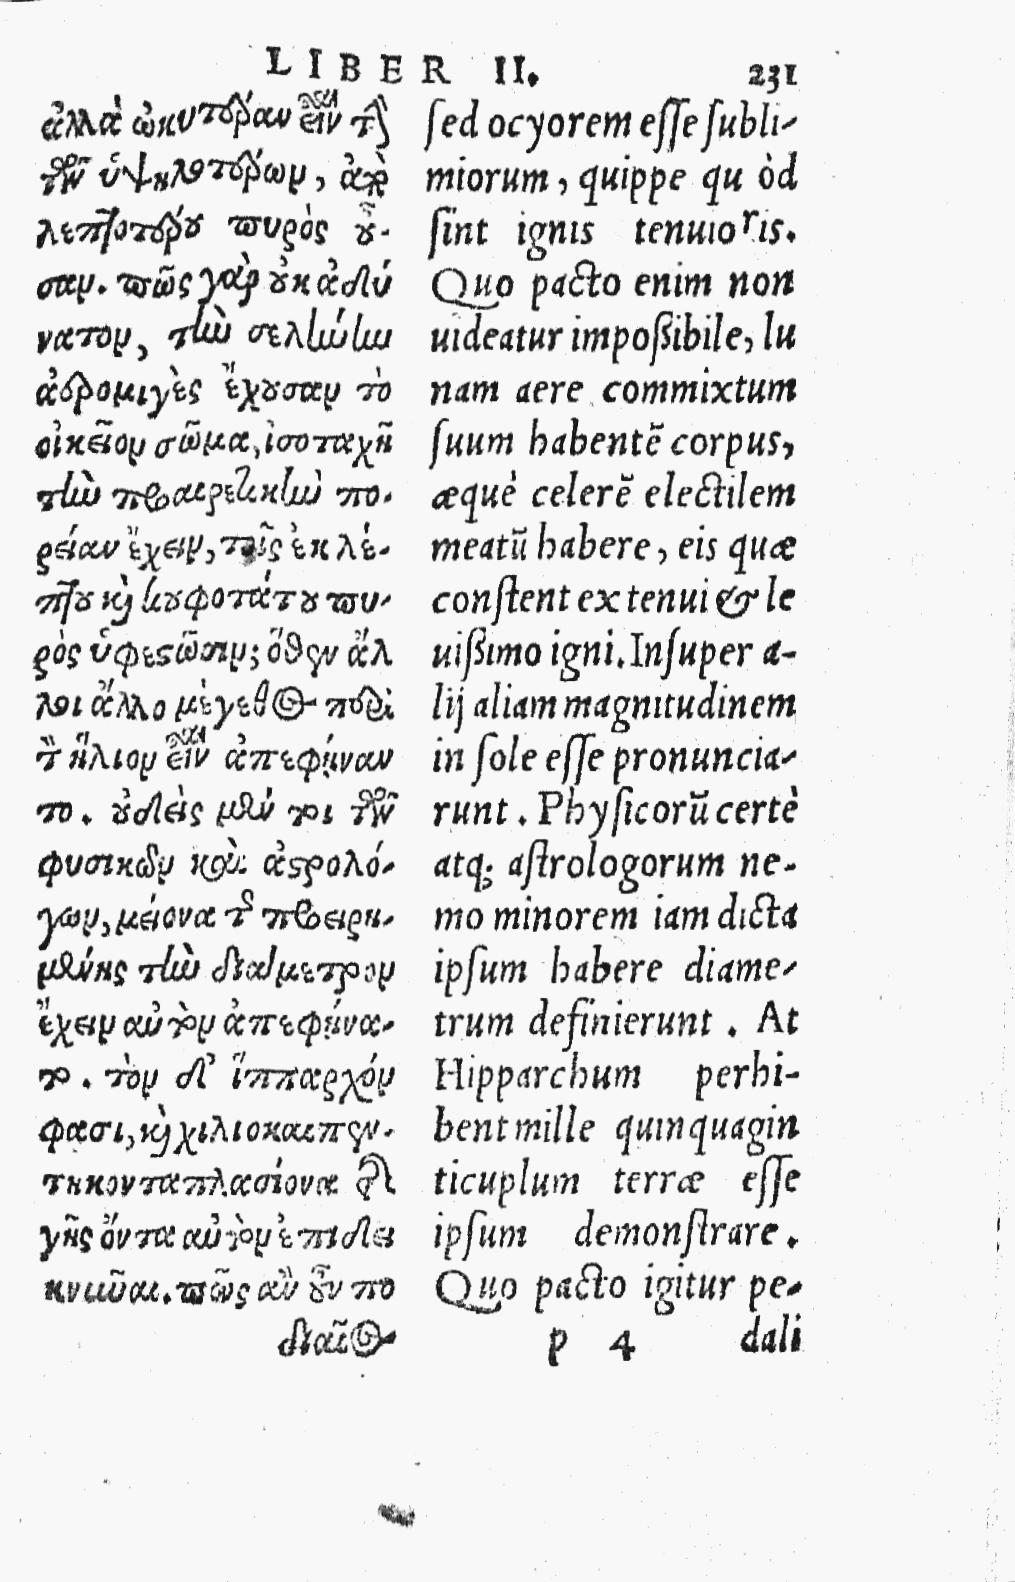 LIBER II. 231
ἀλλὰ ὠκυτέραν εἶναι τῆς
τῶν ὑψηλοτέρων, ἅτε
λεπτοτέρου πυρὸς οὖ-
σαν. πῶς γὰρ οὐκ ἀδύ
νατον, τὴν σελήνην
ἀερομιγὲς ἔχουσαν τὸ
οἰκεῖον σῶμα, ἰσοταχῆ
τὴν προαιρετικὴν πο-
ρείαν ἔχειν, τοῖς ἐκ λε-
πτοῦ καὶ κουφοτάτου πυ-
ρὸς ὑφεστῶσιν; ὅθεν ἄλ
λοι ἄλλο μέγεθος περὶ
τὸν ἥλιον εἶναι ἀπεφήναν
το. οὐδεὶς μέν τοι τῶν
φυσικῶν καὶ ἀστρολό-
γων, μείονα τῆς προειρη-
μένης τὴν διάμετρον
ἔχειν αὐτὸν ἀπεφήνα-
το. τὸν δ' ἵππαρχόν
φασι, καὶ χιλιοκαιπεν-
τηκονταπλασίονα τῆς
γῆς ὄντα αὐτὸν ἐπιδει
κνῦναι. πῶς ἂν οὖν πο
διαῖος
sed ocyorem esse subli-
miorum, quippe qu òd
sint ignis tenuioris.
Quo pacto enim non
uideatur impoßibile, lu
nam aere commixtum
suum habentē corpus,
æquè celerē electilem
meatū habere, eis quæ
constent ex tenui & le
uißimo igni. Insuper a-
lij aliam magnitudinem
in sole esse pronuncia-
runt. Physicorū certè
atq; astrologorum ne-
mo minorem iam dicta
ipsum habere diame-
trum definierunt. At
Hipparchum perhi-
bent mille quinquagin
ticuplum terræ esse
ipsum demonstrare.
Quo pacto igitur pe-
p 4 dali